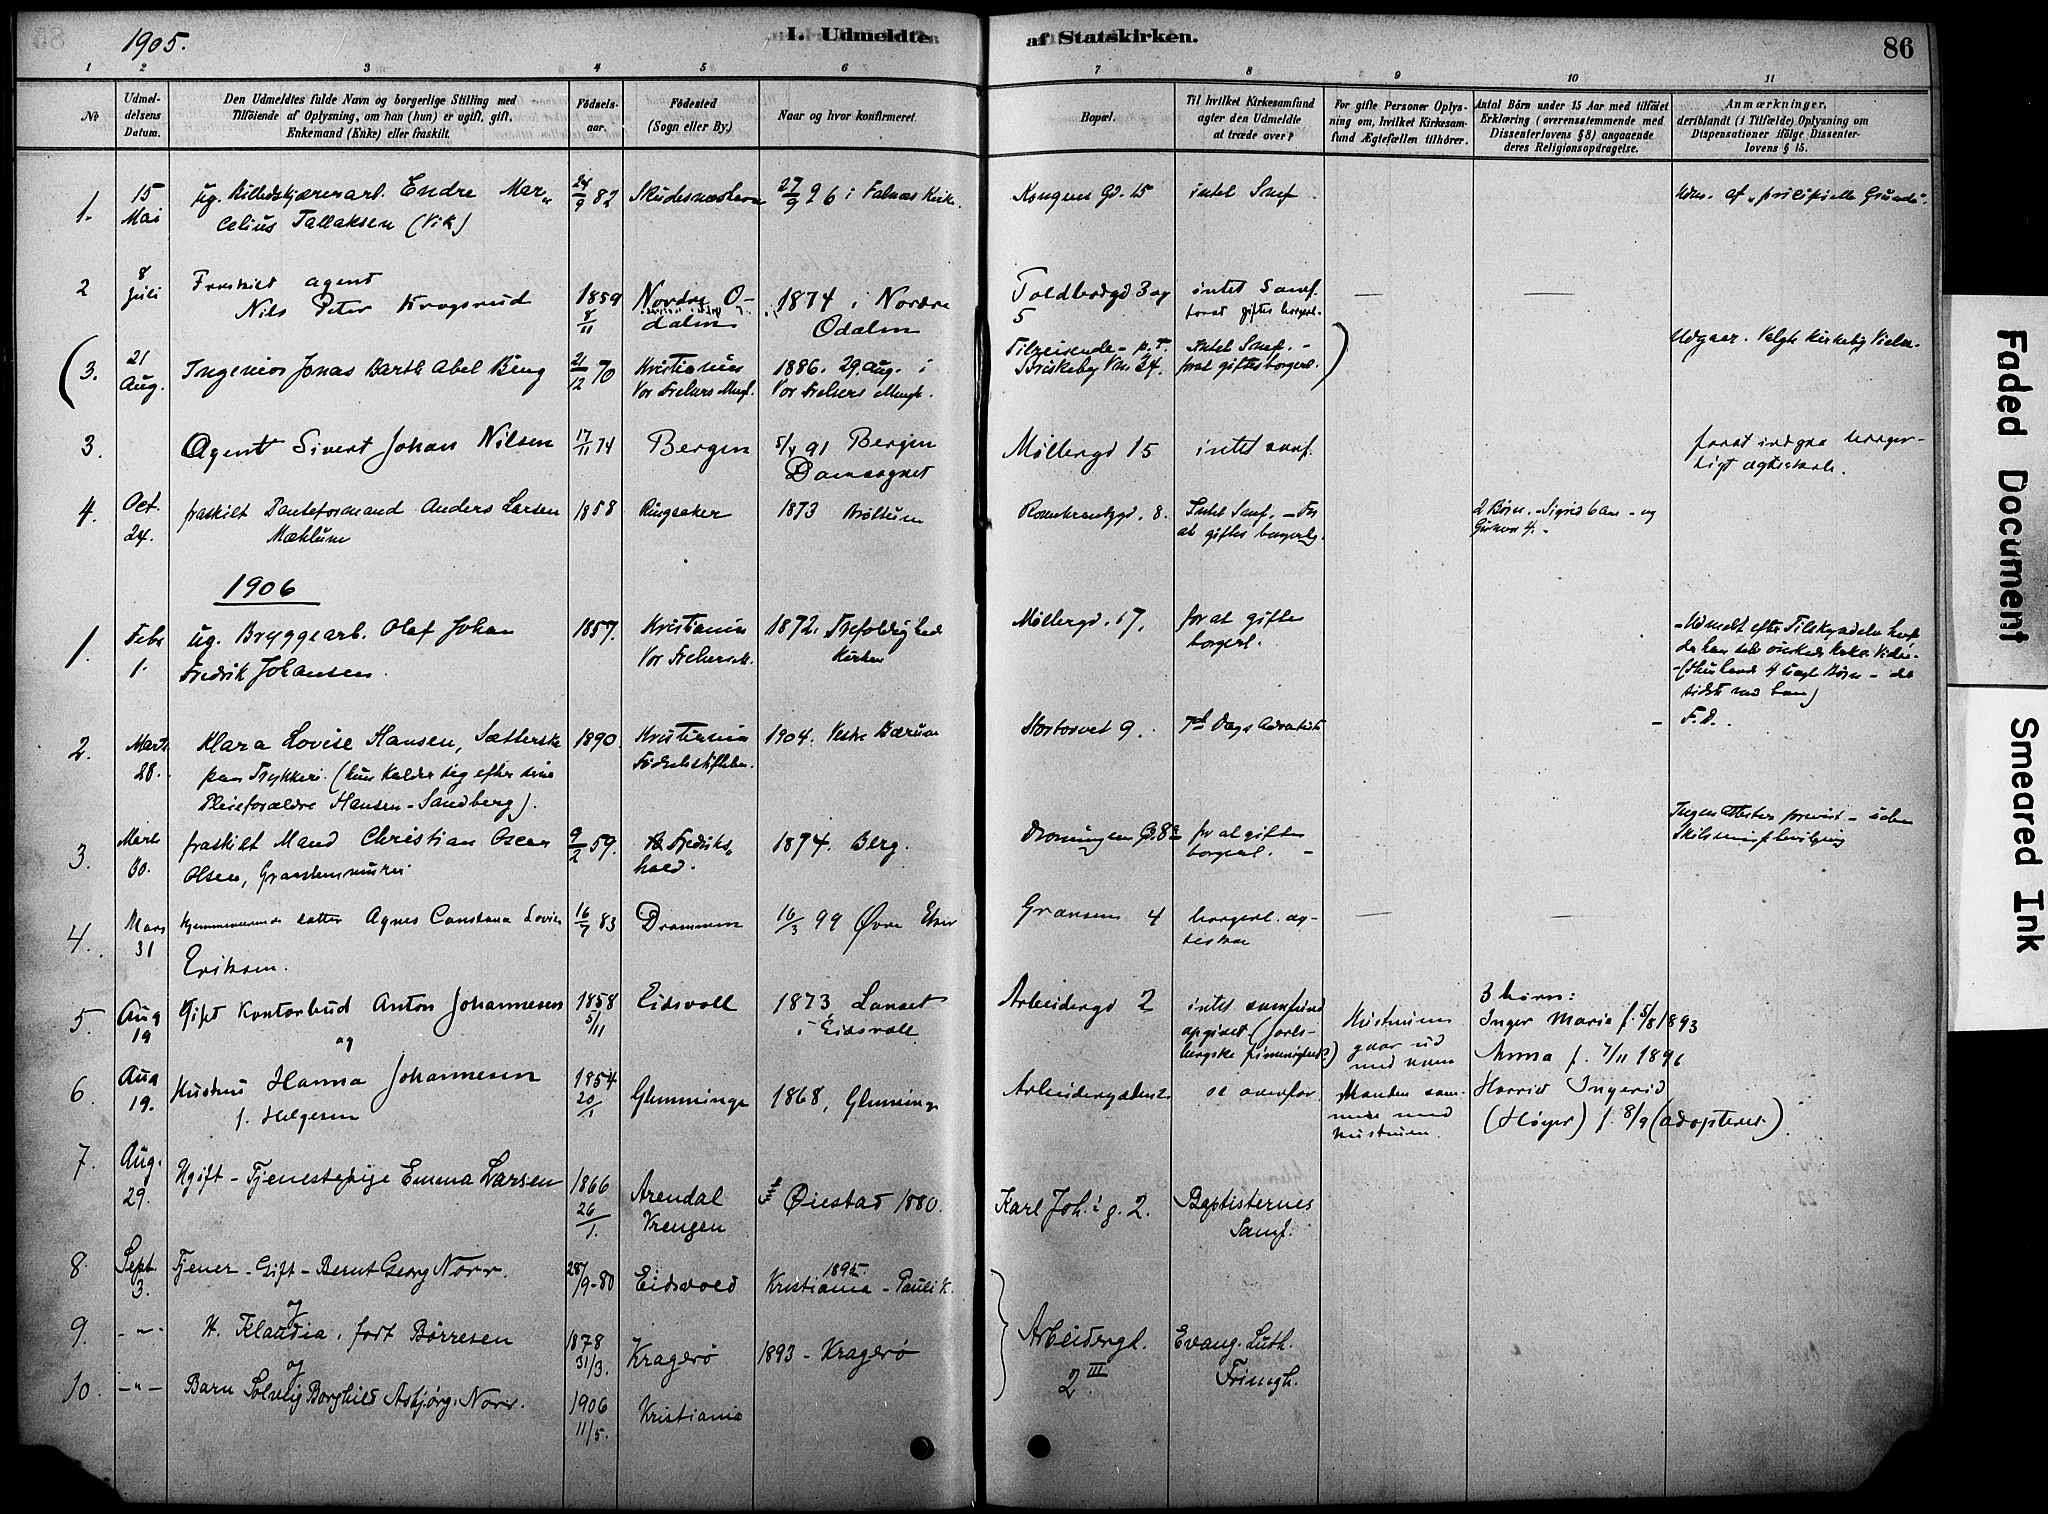 1905.
I. Udmeldte
af Statskirken.
86
1 2 3 4 5 6 7 8 9 10 11
No
Udmel-
delsens
Datum.
Den Udmeldtes fulde Navn og borgerlige Stilling med
Tilføiende af Oplysning, om han (hun) er ugift, gift,
Enkemand (Enke) eller fraskilt.
Fødsels-
aar.
Fødested
(Sogn eller By.)
Naar og hvor konfirmeret.
Bopæl.
Til hvilket Kirkesamfund
agter den Udmeldte
at træde over?
For gifte Personer Oplys-
ning om, hvilket Kirkesam-
fund Ægtefællen tilhører.
Antal Børn under 15 Aar med tilføiet
Erklæring (overensstemmende med
Dissenterlovens § 8) angaaende
deres Religionsopdragelse.
Anmærkninger,
deriblandt (i Tilfælde) Oplysning om
Dispensationer ifølge Dissenter-
lovens § 15.
1. 15 Mai
ug. Billedskjærerarb. Endre Mar-
celius Tallaksen (Vik)
24/9 82
27/9 96 i Falnæs Kirke.
Kongens Gd. 15
intet Smf.
2 8 Juli
Fraskilt agent
Nils Peter Krogsrud
1859 8/11
Nordre O-
dalen
1874 i Nordre
Odalen
Toldbodgd 3 og
5
intet Samf.
(3. 21 Aug.
Ingeniør Jonas Barth Abel Bing
21/12 70
Kristiania
Vor Frelsers Mngh.
1886. 29. Aug. i
Vor Frelsers Mngh.
Tilreisende - p.T.
Briskeby Vn. 24.
Intet Smf. -
)
3.
Agent Sivert Johan Nilsen
17/11 74
Bergen
5/4 91 Bergen
Domsognet
Møllergd 15
intet samf.
forat indgaa borger-
ligt ægteskab.
4. Oct. 24.
fraskilt Anders Larsen
Mæhlum
1858
Ringsaker
1873 Brøttum
Rosenkrantzgd. 8.
Intet Smf. - For
at giftes borgerlig.
2 Børn. - Sigrid 6 aar - og
4. -
1906
1. Febr 1.
ug. Bryggearb. Olaf Johan
Fredrik Johansen
1857.
Kristiania
Vor Frelsers M.
1872. Trefoldigheds
Kirken
Møllergd. 17.
for at giftes
borgerl.
2. Marts 28.
Klara Lovise Hansen, Sætterske
paa Trykkeri. (hun kalder sig efter sine
Pleieforældre Hansen-Sandberg).
1890.
Kristiania
Fødselsstiftelse.
1904. Vestre Bærum
Stortorvet 9.
7de Dags Adventist
- F.D.
3. Marts 30.
fraskilt Mand Christian Oscar
Olsen,
9/2 59.
Fredriks-
hald.
1874. Berg.
Dronningens G. 8
for at giftes
borgerl. -
4. Mars 31
hjemmeværende datter Agnes Constance Lovise
Eriksen.
16/7 83
Drammen
16/3 99 Øvre Eker
Grænsen 4
borgerl. æg-
teskab
5. Aug 19
Gift Kontorbud Anton Johannesen
og
1858 5/11
Eidsvoll
1873, Langset
i Eidsvoll
Arbeidergd 2
intet samfund
opgivet (Jarls-
bergske frimenighed?)
Hustruen
gaar ud
med ham
3 børn:
Inger Marie f. 5/8 1893
Anna f. 7/11 1896
6. Aug 19.
Hustru Hanna Johannesen
f. Helgesen
1854 20/1
Glemminge
1868, Glemminge
Arbeidergaden 2
se ovenfor
Manden sam-
men med
hustruen.
Harrid Ingerid
(Høyer) f. 8/9 (adopteret).
7. Aug. 29.
Ugift - Tjenestepige Emma Larsen
1866 26/1.
Arendal
Øiestad 1880.
Karl Joh: g. 2.
Baptisternes
Samf.
8. Sept. 3.
Tjener - Gift - Bernt Georg Norr.
og
28/9-80
Eidsvold
1895
Kristiania - Pauli K.
9. -"-
H. Klaudia, født Børresen
og
1878 31/3.
Kragerø
1893 - Kragerø
Arbeidergd.
2 III
Evang. Luth.
Frimgh.
10. -"-
Barn Solveig Borghild Asbjørg Norr.
1906 11/5.
Kristiania
Faded Document
Smeared Ink